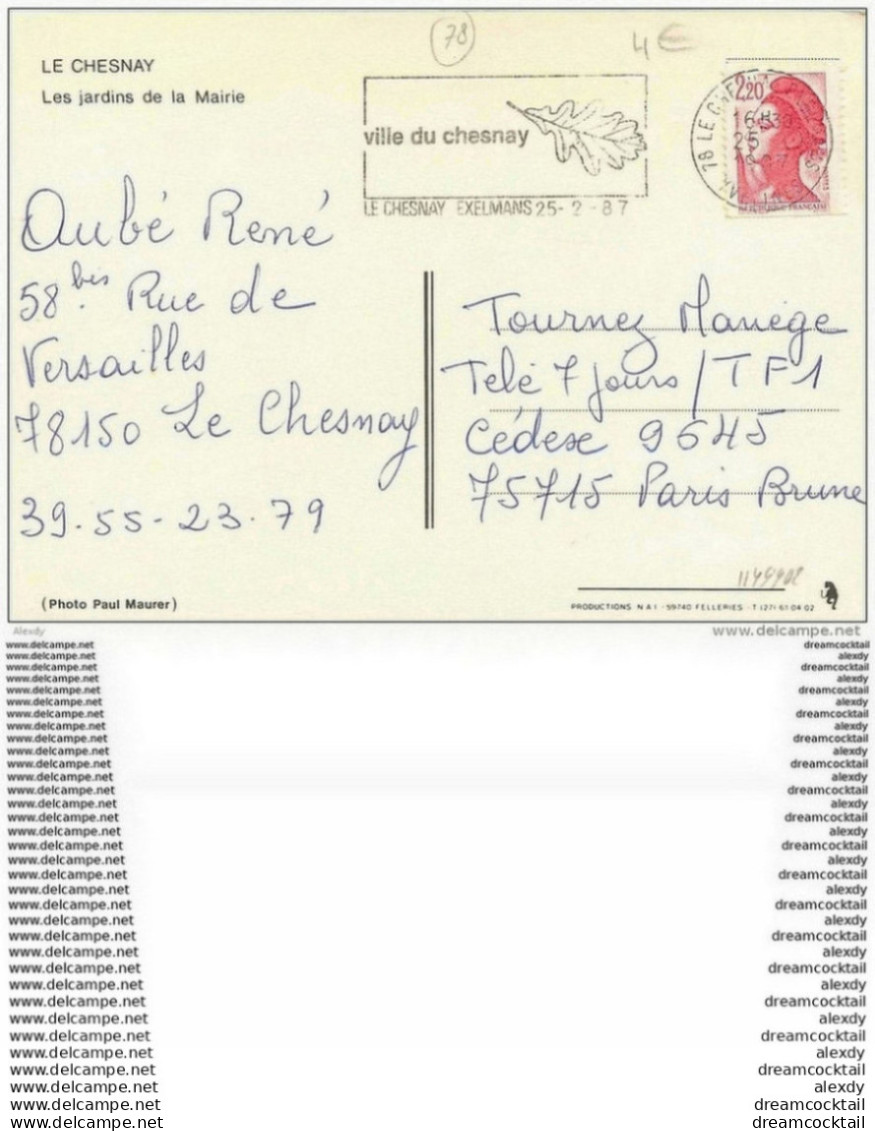 78
4€
LE CHESNAY
Les jardins de la Mairie
ville du chesnay
LE CHESNAY EXELMANS 25-2-87
78 LE CHESNAY
2,20
16H30
25
Aubé René
58 bis Rue de
Versailles
78150 Le Chesnay
39.55-23.79
Tournez Manège
Telé 7 jours / TF1
Cédex 9645
75715 Paris Brune
(Photo Paul Maurer)
1149902
PRODUCTIONS N A I - 59740 FELLERIES - T (27) 61 04 02
Alexdy
www.delcampe.net
www.delcampe.net dreamcocktail
www.delcampe.net alexdy
www.delcampe.net dreamcocktail
www.delcampe.net alexdy
www.delcampe.net dreamcocktail
www.delcampe.net alexdy
www.delcampe.net dreamcocktail
www.delcampe.net alexdy
www.delcampe.net dreamcocktail
www.delcampe.net alexdy
www.delcampe.net dreamcocktail
www.delcampe.net alexdy
www.delcampe.net dreamcocktail
www.delcampe.net alexdy
www.delcampe.net dreamcocktail
www.delcampe.net alexdy
www.delcampe.net dreamcocktail
www.delcampe.net alexdy
www.delcampe.net dreamcocktail
www.delcampe.net alexdy
www.delcampe.net dreamcocktail
www.delcampe.net alexdy
www.delcampe.net dreamcocktail
www.delcampe.net alexdy
www.delcampe.net dreamcocktail
www.delcampe.net alexdy
www.delcampe.net dreamcocktail
www.delcampe.net alexdy
www.delcampe.net dreamcocktail
www.delcampe.net alexdy
www.delcampe.net dreamcocktail
www.delcampe.net alexdy
www.delcampe.net dreamcocktail
www.delcampe.net dreamcocktail